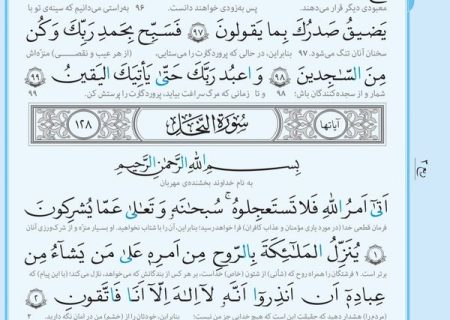 معبودی دیگر قرار می‌دهند. پس به‌زودی خواهند دانست. ۹۶ به‌راستی می‌دانیم که سینه‌ی تو با
يَضيقُ صَدرُكَ بِما يَقولونَ ۹۷ فَسَبِّح بِحَمدِ رَبِّكَ وَ كُن
سخنان آنان تنگ می‌شود. ۹۷ بنابراین، در حالی که پروردگارت را می‌ستایی، (از هر عیب و نقصـــی) منزّه‌اش
مِنَ السّاجِدينَ ۹۸ وَ اعبُد رَبَّكَ حَتّىٰ يَأتِيَكَ اليَقينُ ۹۹
شمار و از سجده‌کنندگان باش؛ ۹۸ و تا زمانی که مرگ سراغت بیاید، پروردگارت را پرستش کن.
آیاتها سُورَةُ النَّحل ۱۲۸
بِسمِ اللهِ الرَّحمٰنِ الرَّحيمِ
به نام خداوند بخشنده‌ی مهربان
اَتىٰ اَمرُ اللهِ فَلا تَستَعجِلوهُ سُبحانَهُ وَ تَعالىٰ عَمّا يُشرِكونَ
فرمان قطعی خدا (در مورد یاری مؤمنان و عذاب کافران) فرا خواهد رسید؛ بنابراین، آن را با شتاب نخواهید. او بسیار منزّه و از شرک‌ورزی آنان
۱ يُنَزِّلُ المَلٰئِكَةَ بِالرّوحِ مِن اَمرِهِ عَلىٰ مَن يَشاءُ مِن
برتر است. ۱ فرشتگان را همراه روح که (شأنی) از شئون (خاص) خداست، بر هر کس از بندگانش که می‌خواهد، نازل می‌کند؛ (با این پیام) که
عِبادِهِ اَن اَنذِروا اَنَّهُ لا اِلٰهَ اِلّا اَنَا فَاتَّقونِ ۲
(مردم را) هشدار دهید که حقیقت این است که هیچ خدایی جز من نیست؛ بنابراین، خودتان را از (خشم) من در امان نگه دارید.